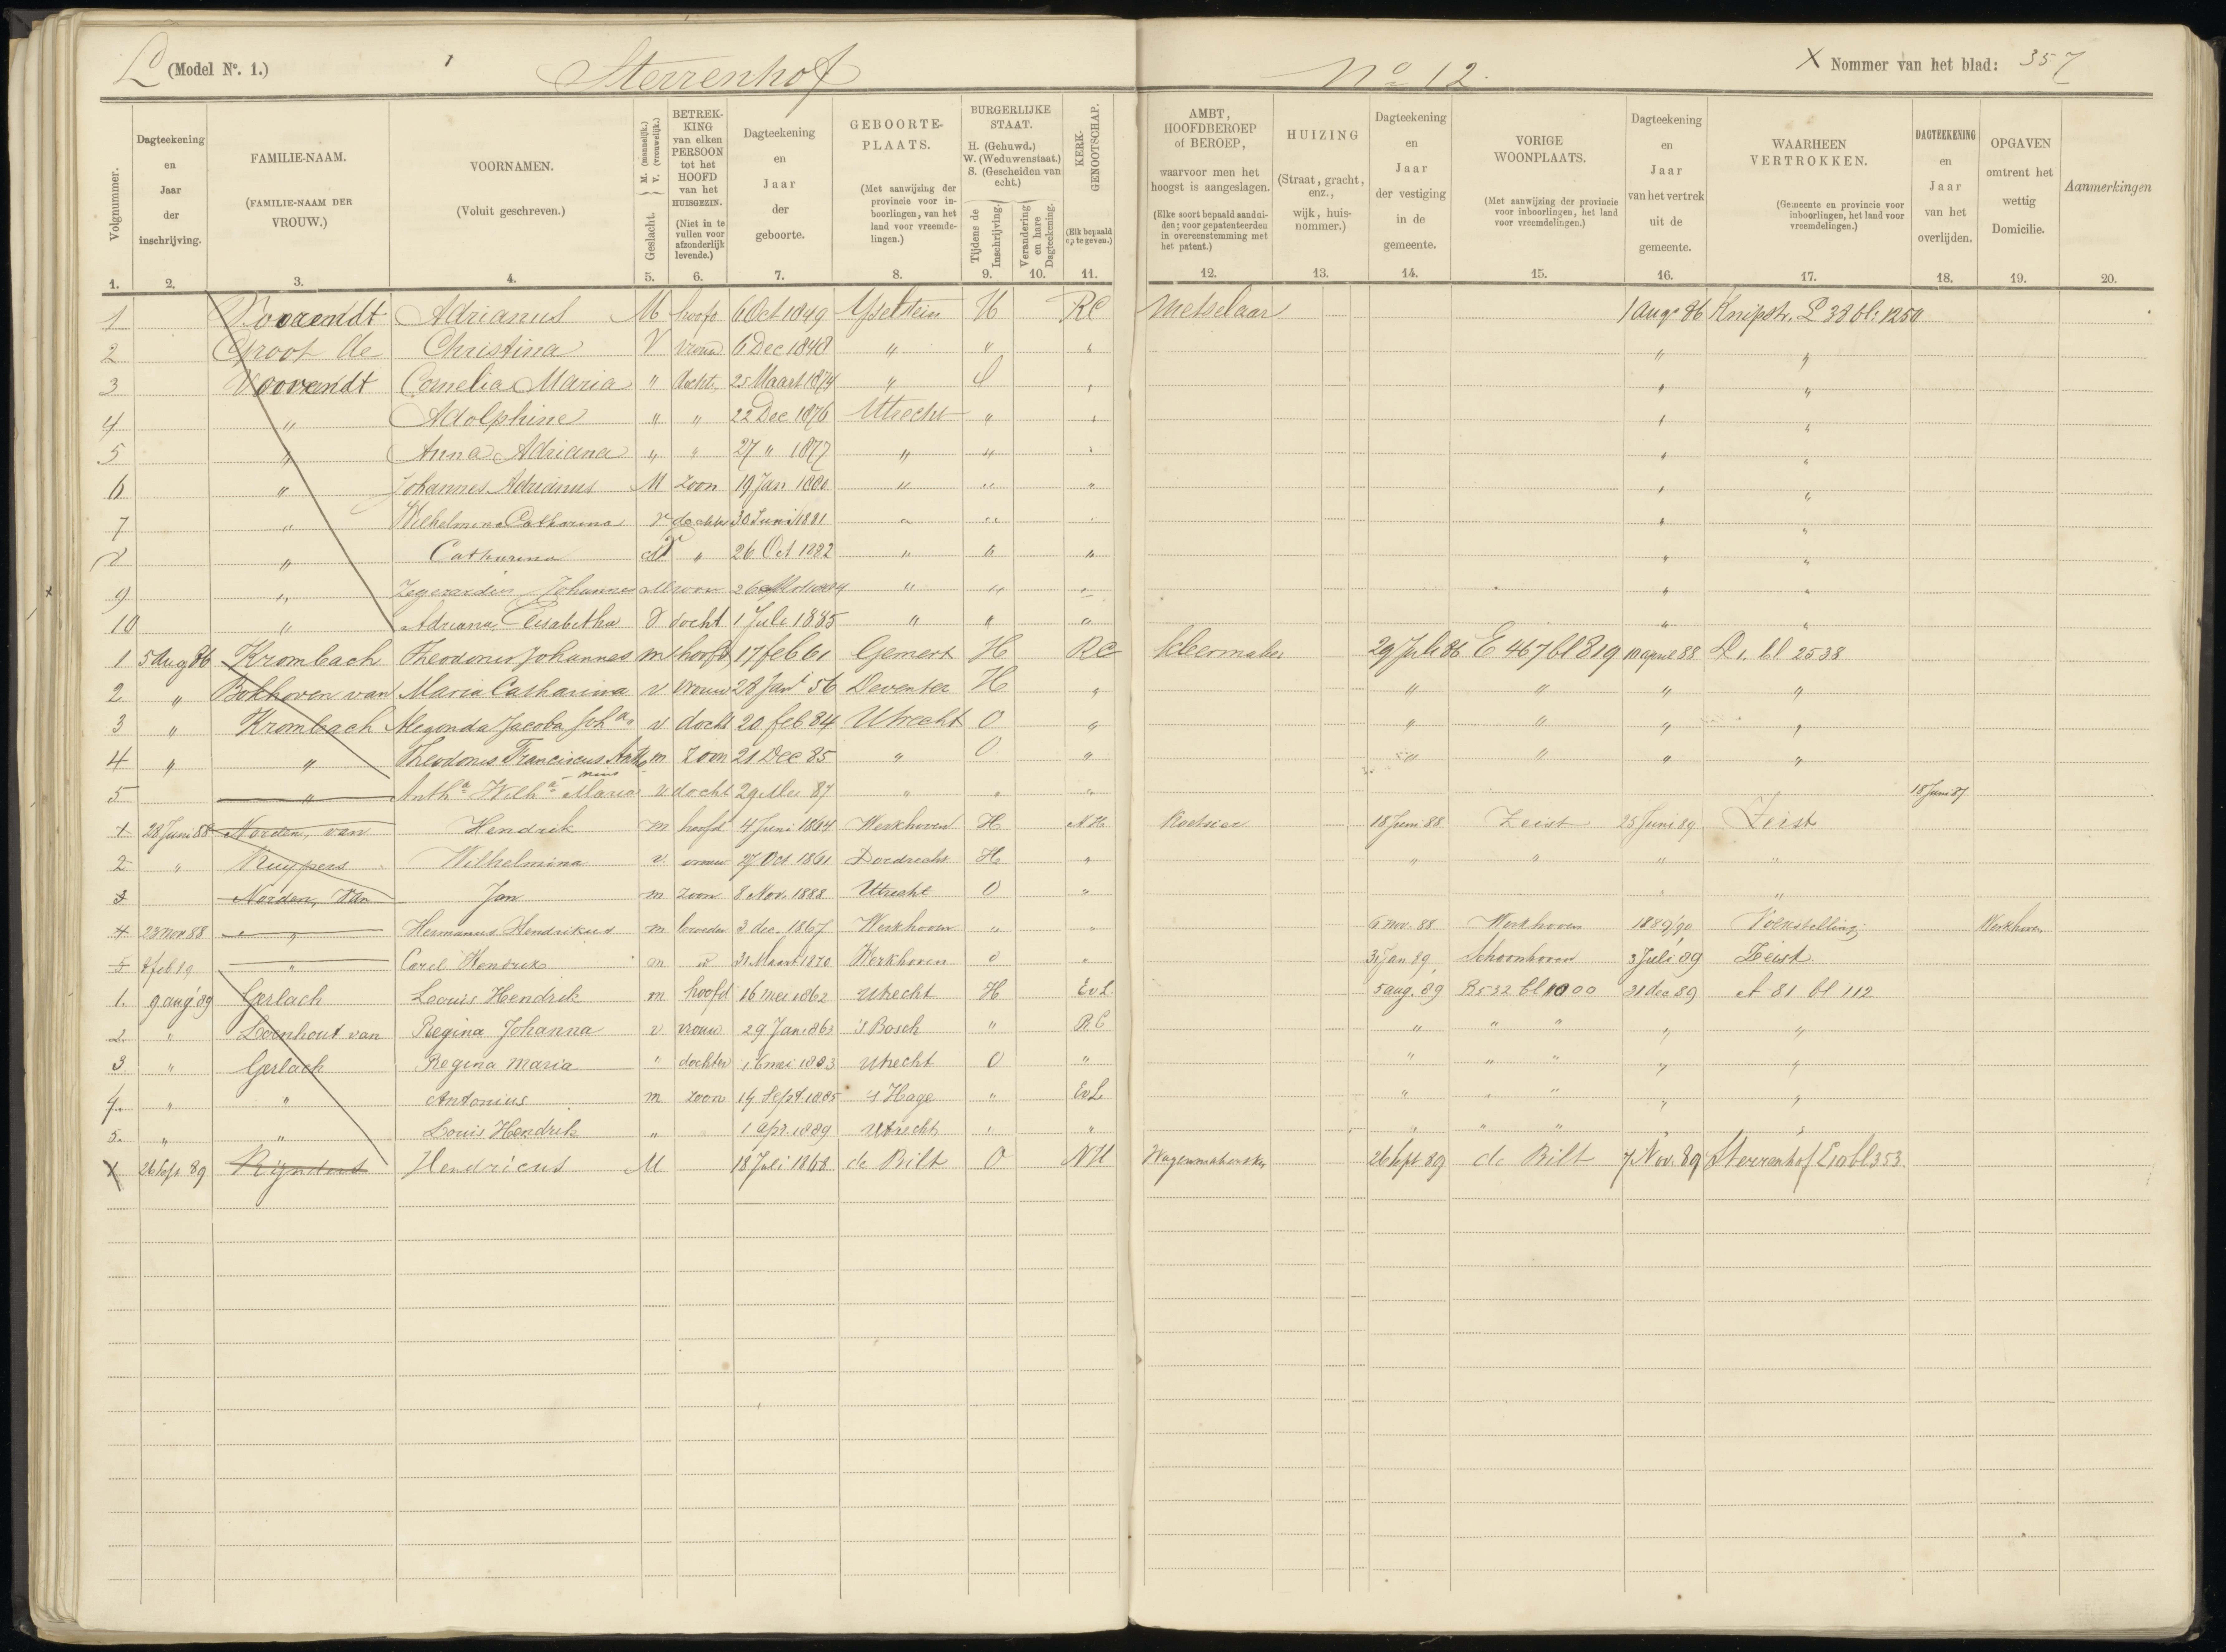 L (Model No. 1.) 1 Sterrenhof No 12. X Nommer van het blad: 357
Volgnummer. 1.
Dagteekening en Jaar der inschrijving. 2.
FAMILIE-NAAM. (FAMILIE-NAAM DER VROUW.) 3.
VOORNAMEN. (Voluit geschreven.) 4.
Geslacht. M. (mannelijk.) V. (vrouwelijk.) 5.
BETREKKING van elken PERSOON tot het HOOFD van het HUISGEZIN. (Niet in te vullen voor afzonderlijk levende.) 6.
Dagteekening en Jaar der geboorte. 7.
GEBOORTE-PLAATS. (Met aanwijzing der provincie voor inboorlingen, van het land voor vreemdelingen.) 8.
BURGERLIJKE STAAT. H. (Gehuwd.) W. (Weduwenstaat.) S. (Gescheiden van echt.)
Tijdens de Inschrijving. 9.
Verandering en hare Dagteekening. 10.
KERK-GENOOTSCHAP. (Elk bepaald op te geven.) 11.
AMBT, HOOFDBEROEP of BEROEP, waarvoor men het hoogst is aangeslagen. (Elke soort bepaald aanduiden; voor gepatenteerden in overeenstemming met het patent.) 12.
HUIZING (Straat, gracht, enz., wijk, huisnommer.) 13.
Dagteekening en Jaar der vestiging in de gemeente. 14.
VORIGE WOONPLAATS. (Met aanwijzing der provincie voor inboorlingen, het land voor vreemdelingen.) 15.
Dagteekening en Jaar van het vertrek uit de gemeente. 16.
WAARHEEN VERTROKKEN. (Gemeente en provincie voor inboorlingen, het land voor vreemdelingen.) 17.
DAGTEEKENING en Jaar van het overlijden. 18.
OPGAVEN omtrent het wettig Domicilie. 19.
Aanmerkingen 20.
1 Voorendt Adrianus M hoofd 6 Oct 1849 IJselstein H RC Metselaar 1 Augs 86 Knipstr. L 38 bl. 1250
2 Groot de Christina V vrouw 6 Dec 1848 " " " " "
3 Voorendt Cornelia Maria " docht. 25 Maart 1874 " O " " "
4 " Adolphine " " 22 Dec 1876 Utrecht " " " "
5 " Anna Adriana " " 27 " 1877 " " " " "
6 " Johannes Adrianus M zoon 19 Jan 1880 " " " " "
7 " Wilhelmina Catharina V dochter 30 Juni 1881 " " " " "
8 " Catharina V " 26 Oct 1882 " " " " "
9 " Johannes M zoon 26 " " " " "
10 " Adriana Elisabetha V docht 1 Juli 1885 " " " " "
1 5 Aug 86 Krombach Theodorus Johannes m hoofd 17 feb 61 Gemert H RC kleermaker 29 Juli 86 E 467 bl 819 10 april 88 D 1. bl 2538
2 " Bokhoven van Maria Catharina v vrouw 28 Jan 56 Deventer H " " " " "
3 " Krombach Alegonda Jacoba Joha v docht 20 feb 84 Utrecht O " " " " "
4 " " Theodorus Franciscus m zoon 21 Dec 85 " O " " " " "
5 " Antha Wilha Maria v docht 29 Mei 87 " " " 18 Juni 87
1 28 Juni 88 Norden, van Hendrik m hoofd 4 Juni 1864 Werkhoven H NH Koetsier 18 Juni 88 Zeist 25 Juni 89 Zeist
2 " Kuypers Wilhelmina v. vrouw 27 Oct 1861 Dordrecht H " " " " "
3 Norden, van Jan m zoon 8 Nov. 1888 Utrecht O " " "
4 28 Nov 88 " Hermanus Hendrikus m broeder 3 dec. 1867 Werkhoven " " 6 Nov. 88 Werkhoven 1889/90 Volkstelling Werkhoven
5 feb 89 " Carel Hendrik m " 31 Maart 1870 Werkhoven O " 31 Jan 89 Schoonhoven 3 Juli 89 Zeist
1. 9 aug 89 Gerlach Louis Hendrik m hoofd 16 mei 1862 Utrecht H Ev L. 5 aug. 89 B 532 bl 1000 31 dec 89 A 81 bl 112
2. " Loenhout van Regina Johanna v vrouw 29 Jan 1863 's Bosch " RC " " " " "
3 " Gerlach Regina Maria " dochter 16 mei 1883 Utrecht O " " " " " "
4. " " Antonius m zoon 14 Sept. 1885 's Hage " Ev L " " " " "
5. " " Louis Hendrik " 1 apr. 1889 Utrecht " " " " " " "
1 26 Sept 89 Rijnders Hendricus M 18 Juli 1868 de Bilt O NH Wagenmakerskn 26 Sept 89 de Bilt 7 Nov. 89 Sterrenhof L 10 bl 353